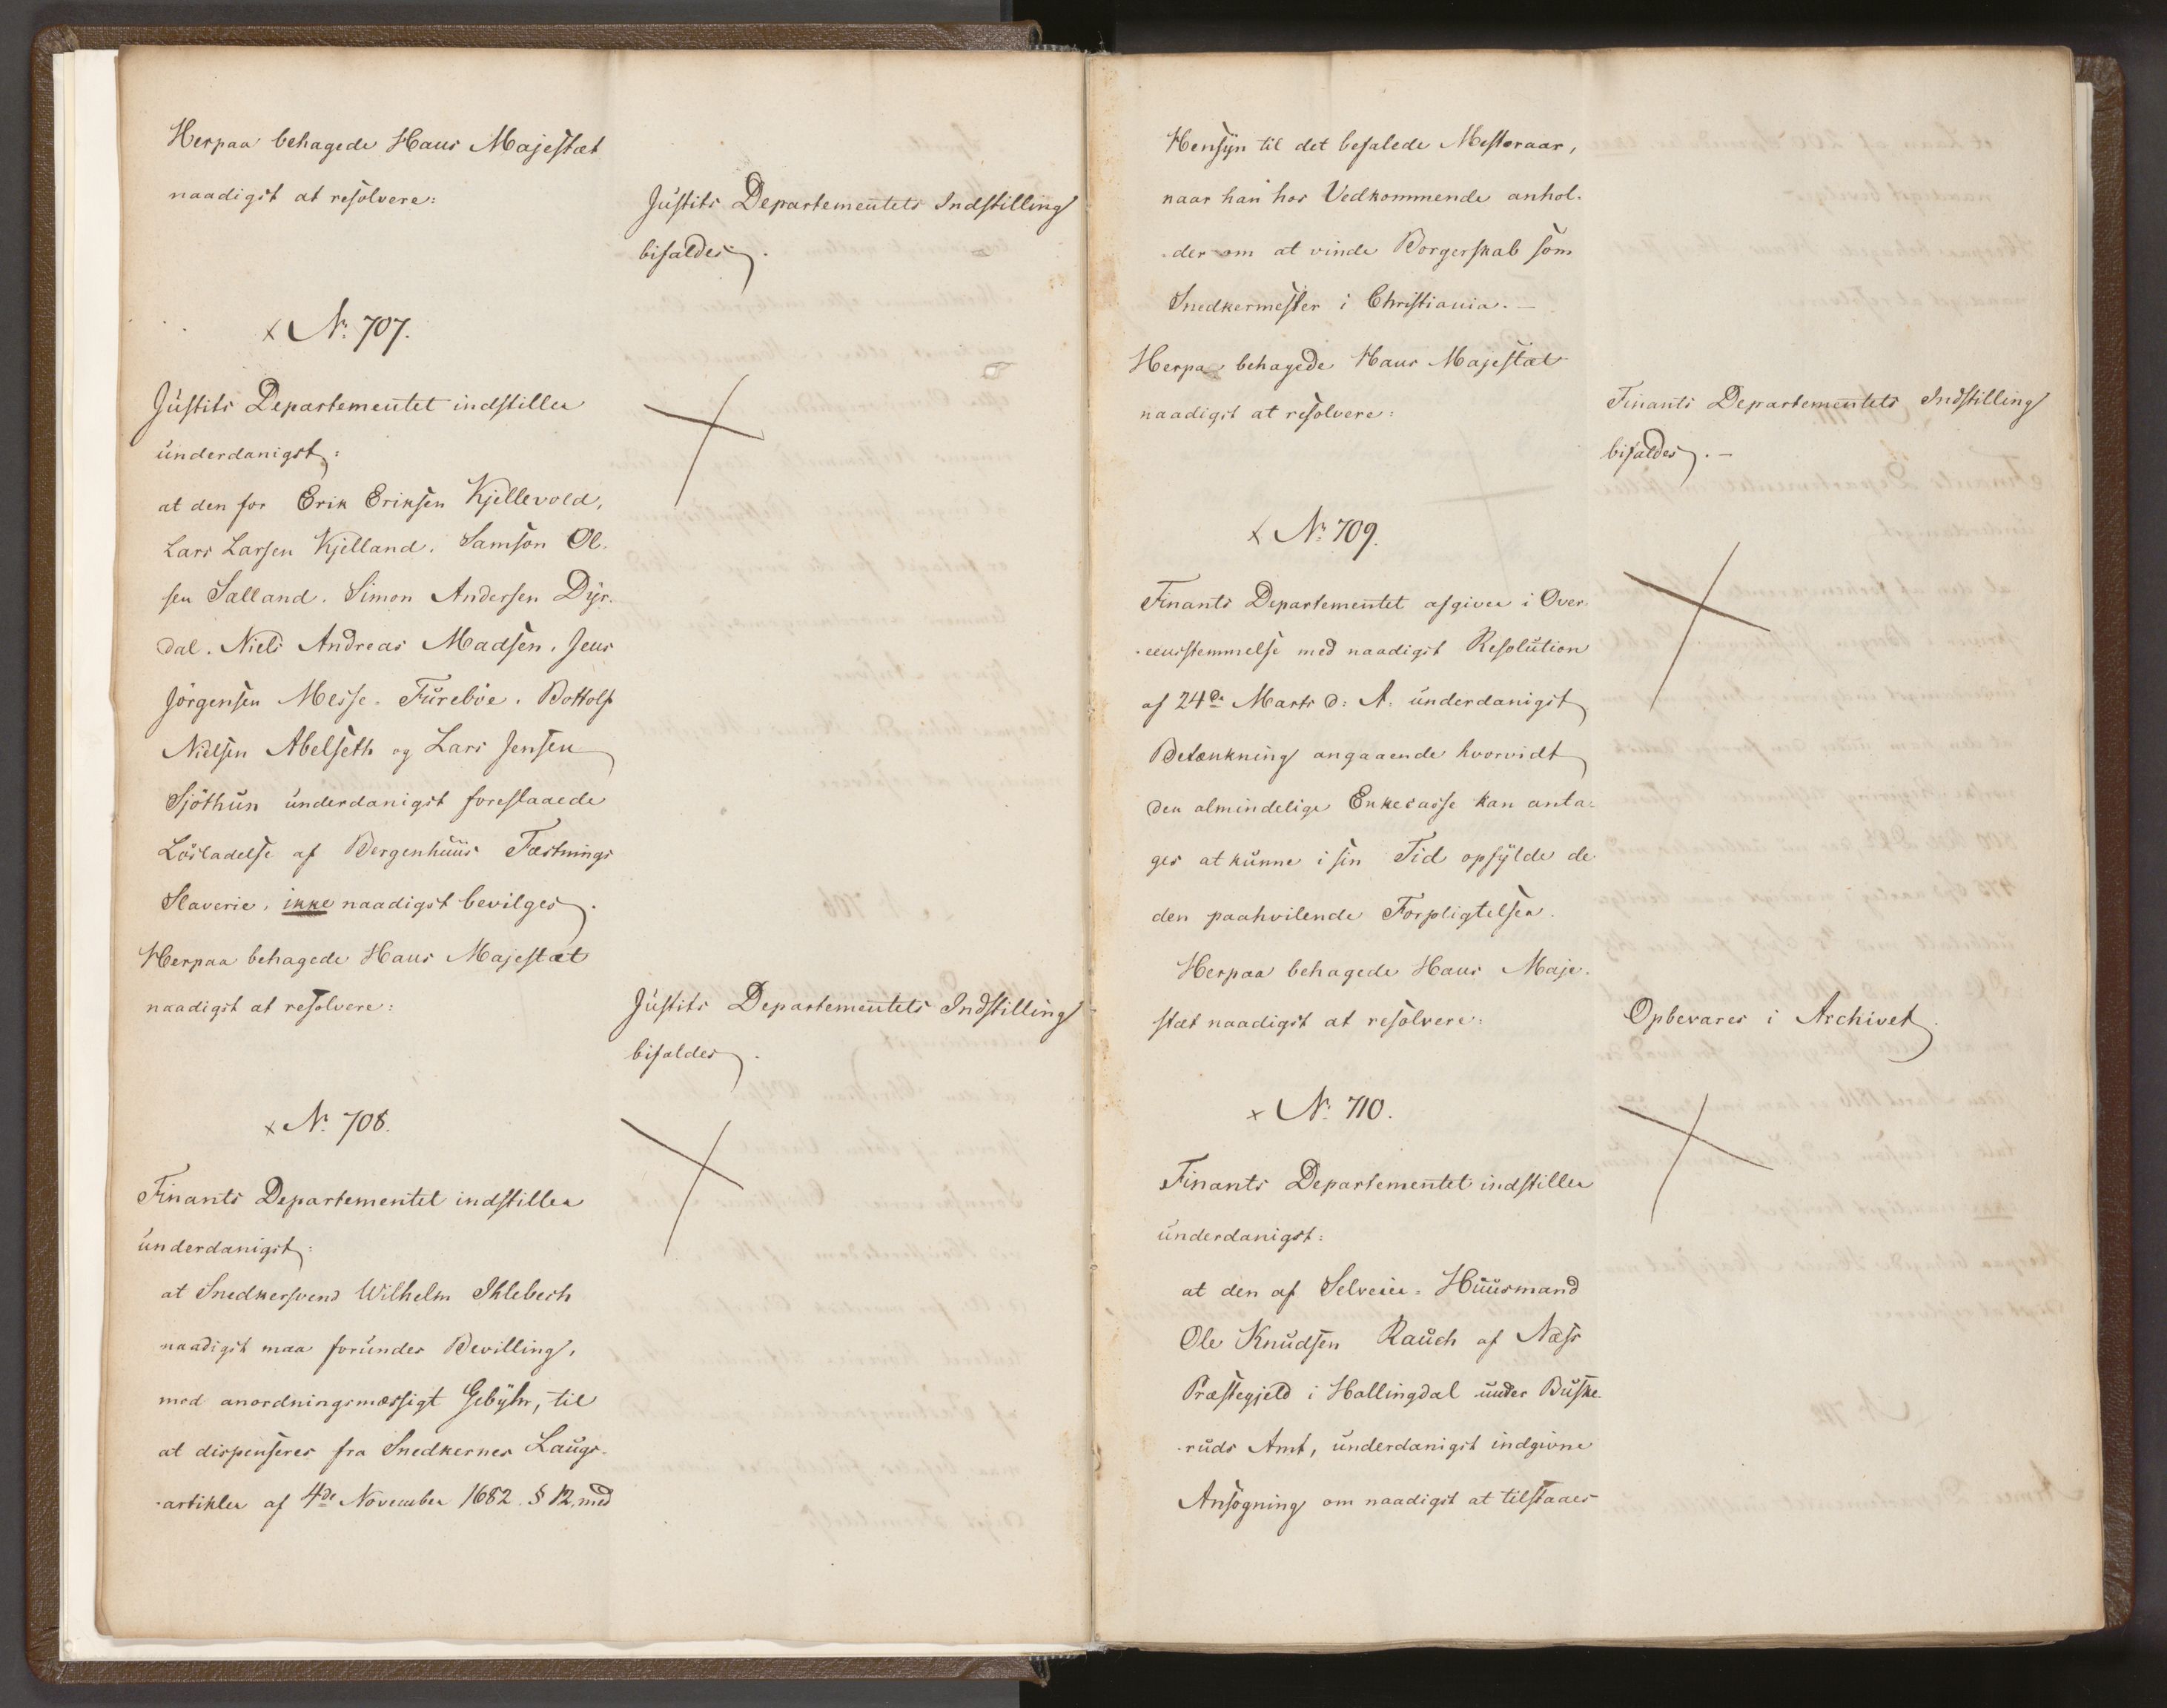 Herpaa behagede Hans Majestæt
naadigst at resolvere:
Justits Departementets Indstilling
bifaldes.
x No. 707.
Justits Departementet indstiller
underdanigst:
at den for Erik Eriksen Kjellevold,
Lars Larsen Kjelland, Samson Ol-
sen Salland, Simon Andersen Dyr-
dal, Niels Andreas Madsen, Jens
Jörgensen Messe-Fureböe, Bottolf
Nielsen Abelseth og Lars Jensen
Sjöthun underdanigst foreslaaede
Lösladelse af Bergenhuus Fæstnings
Slaverie, ikke naadigst bevilges.
Herpaa behagede Hans Majestæt
naadigst at resolvere:
Justits Departementets Indstilling
bifaldes.
x No. 708.
Finants Departementet indstiller
underdanigst:
at Snedkersvend Wilhelm Ihlebech
naadigst maa forundes Bevilling,
mod anordningsmæssigt Gebyhr, til
at dispenseres fra Snedkernes Laugs-
-artikler af 4de November 1682 § 12, med
Hensyn til det befalede Mesteraar,
naar han hos Vedkommende anhol-
-der om at vinde Borgerskab som
Snedkermester i Christiania. —
Herpaa behagede Hans Majestæt
naadigst at resolvere:
Finants Departementets Indstilling
bifaldes. —
x No. 709.
Finants Departementet afgiver i Over-
-eensstemmelse med naadigst Resolution
af 24de Marts d: A: underdanigst
Betænkning angaaende hvorvidt
den almindelige Enkecasse kan anta-
ges at kunne i sin Tid opfylde de
den paahvilende Forpligtelser.
Herpaa behagede Hans Maje-
stæt naadigst at resolvere:
Opbevares i Archivet.
x No. 710.
Finants Departementet indstiller
underdanigst:
at den af Selveier-Huusmand
Ole Knudsen Rauch af Næss
Præstegjeld i Hallingdal under Buske-
-ruds Amt, underdanigst indgivne
Ansögning om naadigst at tilstaaes